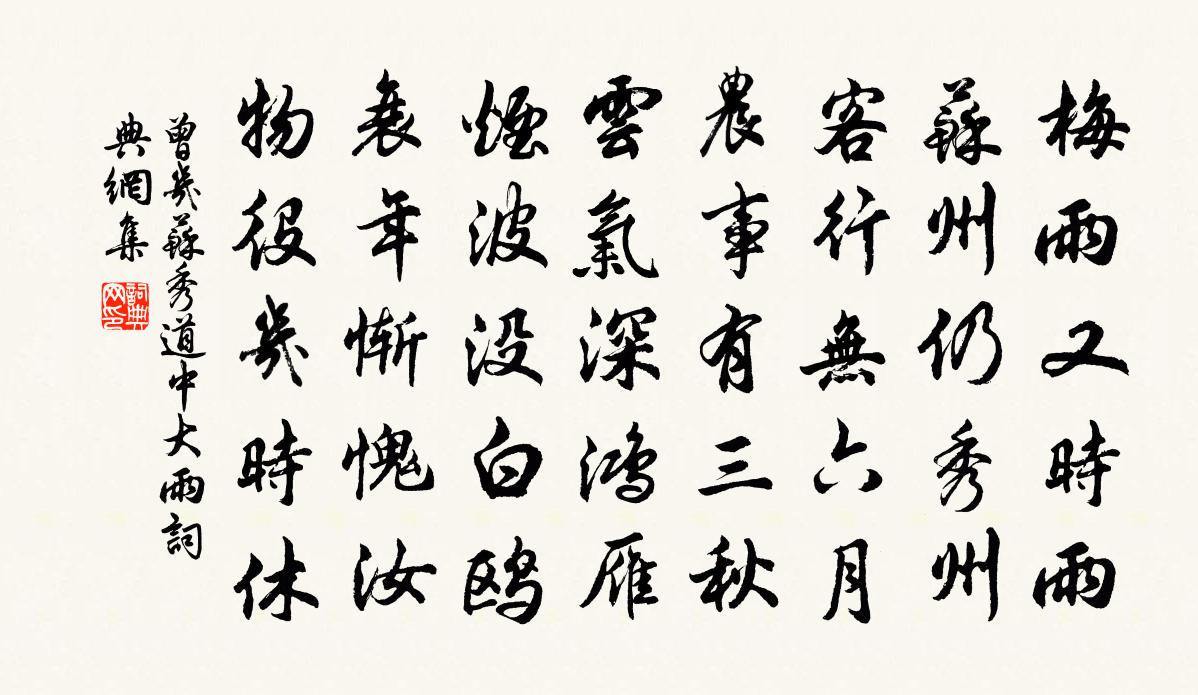 梅雨又時雨
蘇州仍秀州
客行無六月
農事有三秋
雲氣深鴻雁
煙波没白鸥
衰年慚愧汝
物役幾時休
曾幾蘇秀道中大雨詞
典網集
詞典
网印